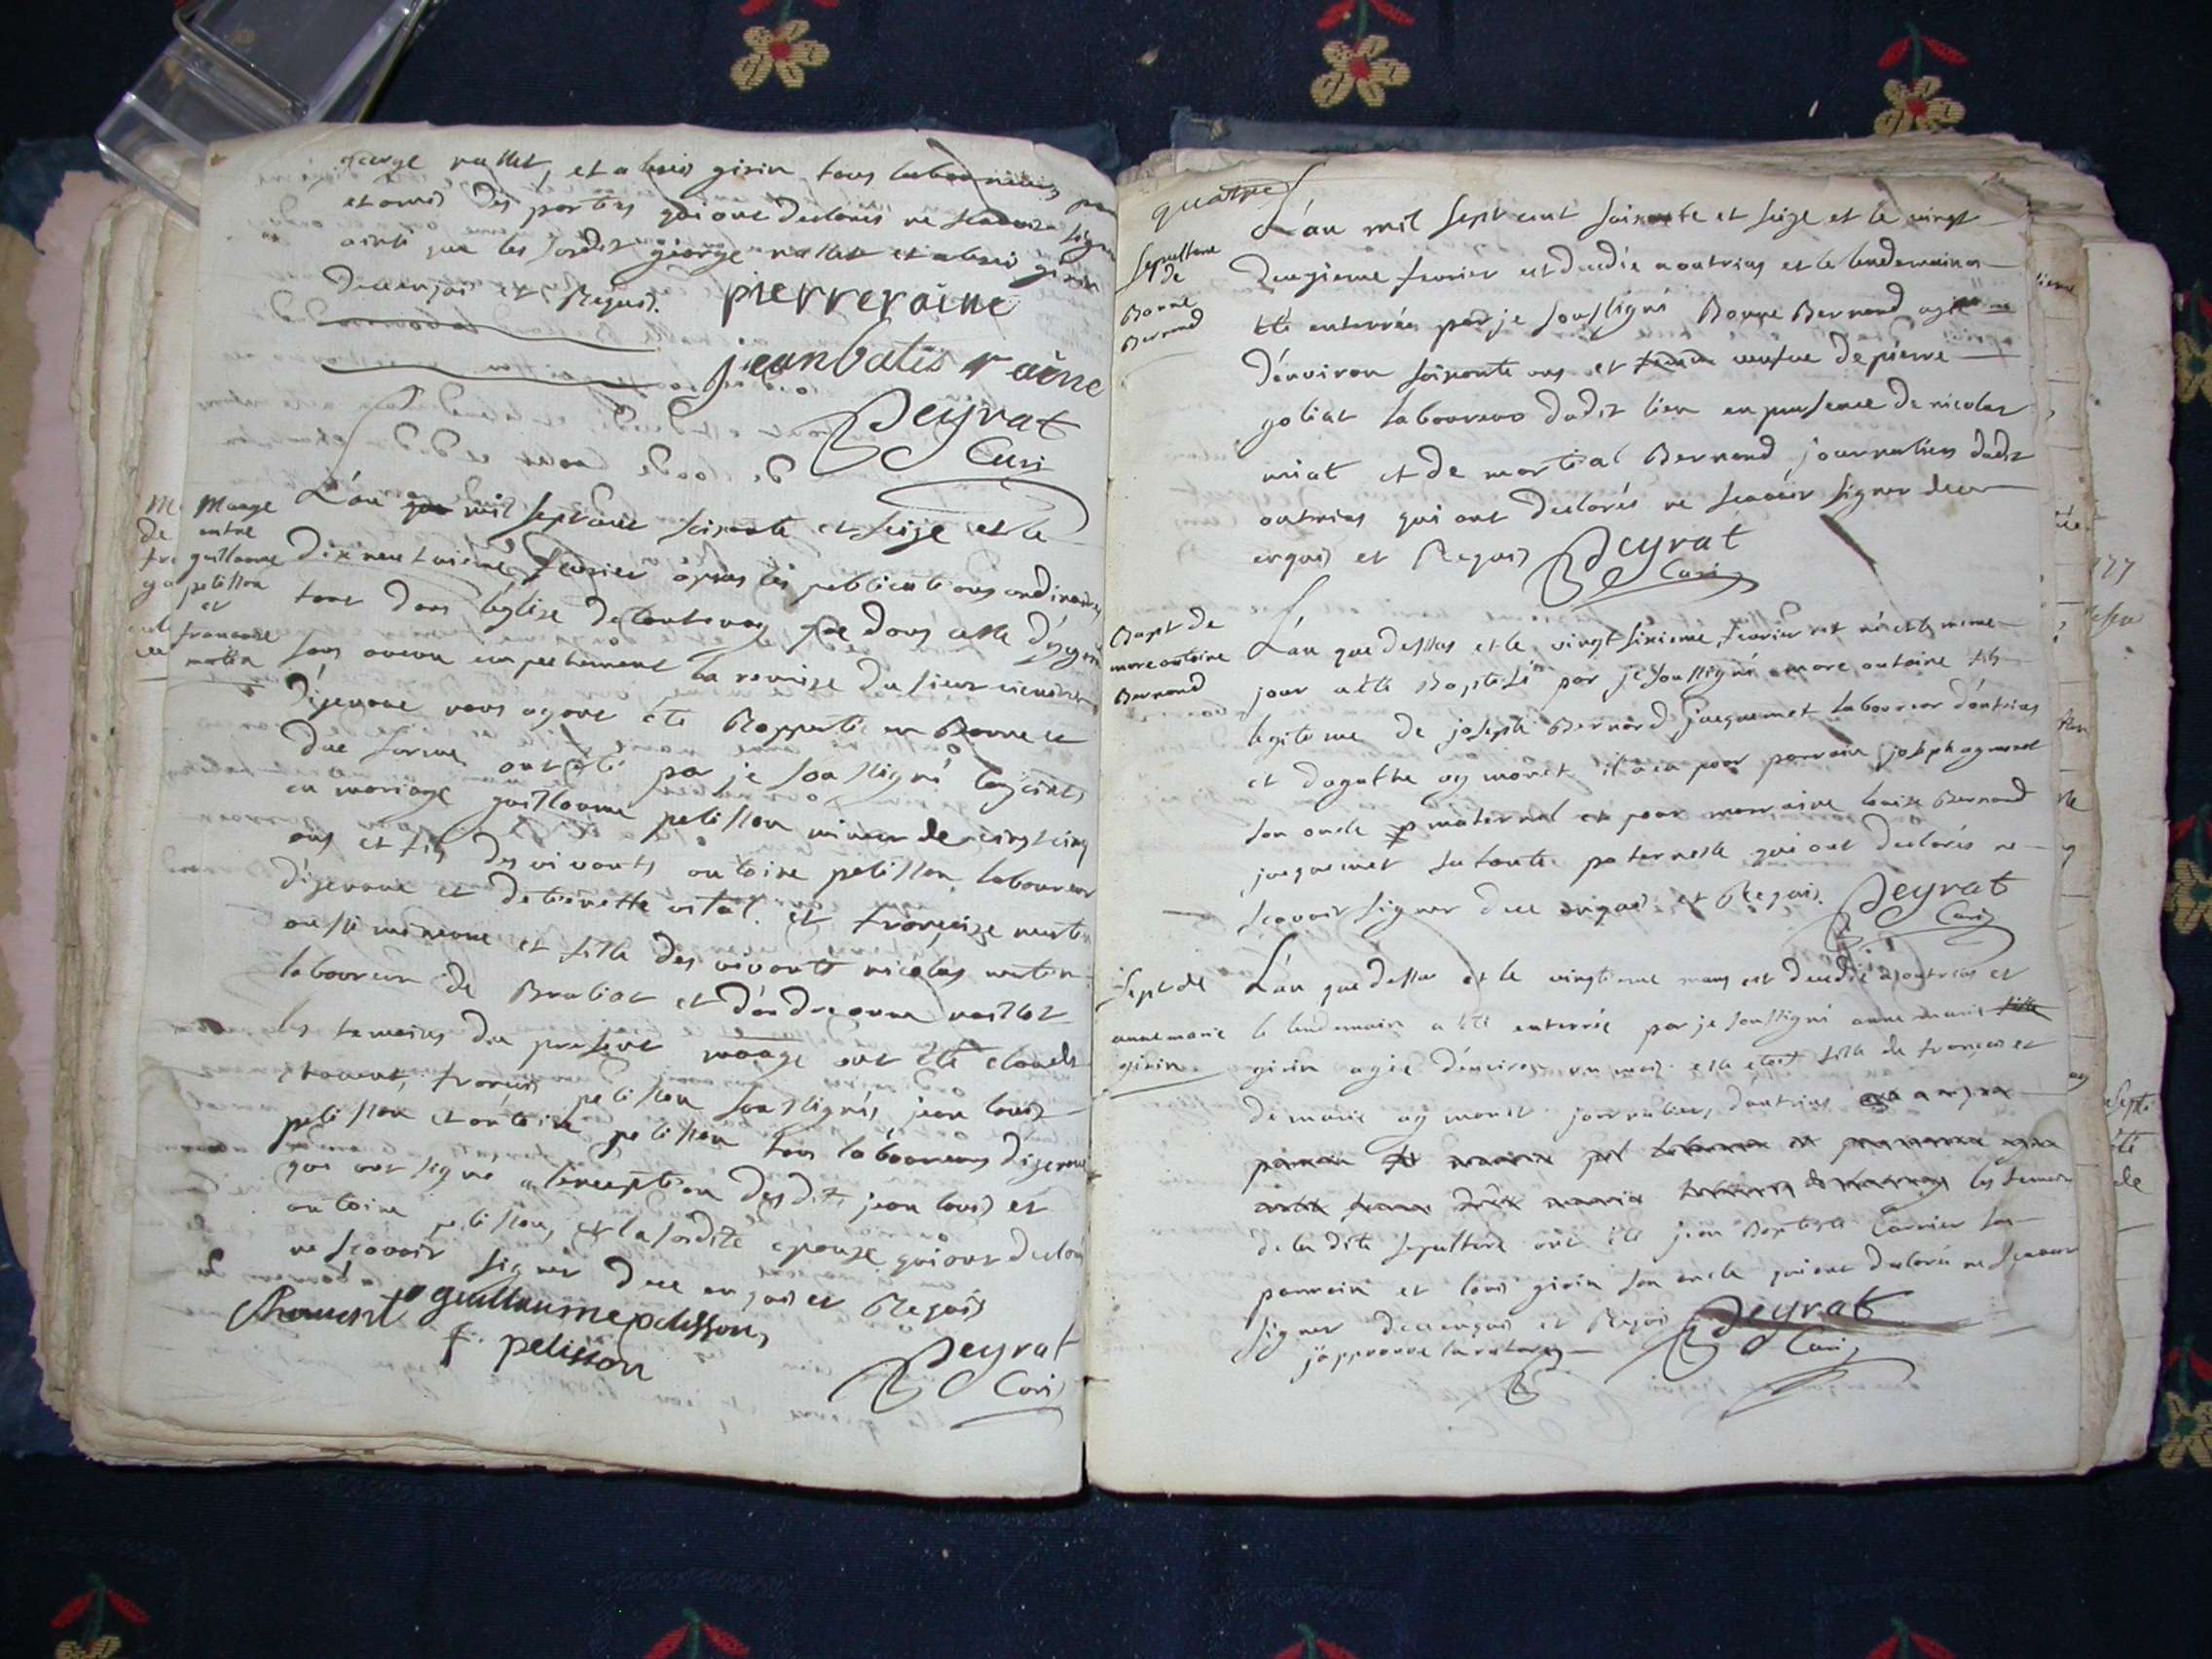 george vallet, et alexis girin tous laboureurs
et amis des parties qui ont declarés ne scavoir signer
ainsi que les susdit george vallet et alexis girin
de ce enquis et Requis.
pierreraine
jeanbatis raine
Peyrat
Curé
Mariage
entre
guillaume
pelisson
et
francoise
martin
L'an mil sept cent soixante et seize et le
dixneuvieme fevrier apres les publications ordinaires
tant dans l'eglise que dans celle
sans aucun empechement la remise du sieur
nous ayant été Rapportée en Bonne et
due forme ont été par je soussigné conjoints
en mariage guillaume pelisson mineur de vingt cinq
ans et fils des vivants antoine pelisson laboureur
et de vital. et françoise martin
aussi mineure et fille des vivants nicolas martin
laboureur de et
les temoins du present mariage ont été claude
chouvent, françois pelisson soussignés, jean louis
pelisson et antoine pelisson tous laboureurs
qui ont signé a l'exception desdits jean louis et
antoine pelisson, et la susdite epouse qui ont declaré
ne scavoir signer de ce enquis et Requis
Chouvent guillaumepelisson
f. pelisson
Peyrat
Curé
quatre
Sepulture
de
Bonne
Bernard
L'an mil sept cent soixante et seize et le vingt
deuzieme fevrier est decedée a outrias et le lendemain a
été enterrée par je soussigné Bonne Bernard agée
d'environ soixante ans et veufve de pierre
goliat laboureur dudit lieu en presence de nicolas
miat et de martial Bernard journaliers dudit
outrias qui ont declarés ne scavoir signer de ce
enquis et Requis Peyrat
Curé
Bapt de
marc antoine
Bernard
L'an que dessus et le vingt sixieme fevrier est né et le meme
jour a été Baptisé par je soussigné marc antoine fils
legitime de joseph Bernard jacquemet laboureur d'outrias
et d'agathe aymonet il a eu pour parrain joseph aymonet
son oncle maternel et pour marraine louise Bernard
jacquemet sa tante paternelle qui ont declarés ne
scavoir signer de ce enquis et Requis. Peyrat
Curé
Sept de
anne marie
girin
L'an que dessus et le vingtieme mars est decedée a outrias et
le lendemain a été enterrée par je soussigné anne marie
girin agée d'environ un mois elle etoit fille de françois et
de marie aymonet journaliers d'outrias
les temoins
de la dite sepulture ont été jean Baptiste Carrier son
parrain et louis girin son oncle qui ont declarés ne scavoir
signer de ce enquis et Requis Peyrat
Curé
j'approuve la rature